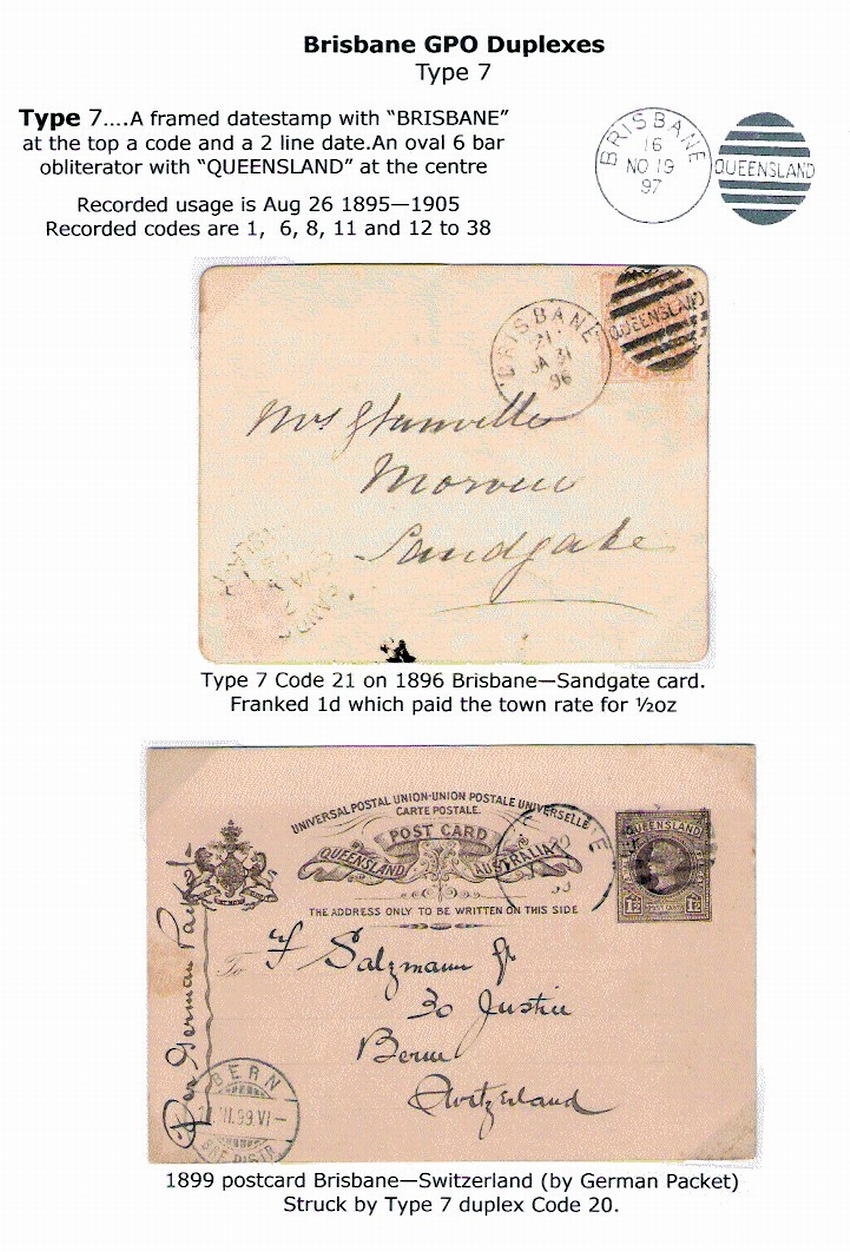 Brisbane GPO Duplexes
Type 7
Type 7....A framed datestamp with “BRISBANE”
at the top a code and a 2 line date.An oval 6 bar
obliterator with “QUEENSLAND” at the centre
Recorded usage is Aug 26 1895—1905
Recorded codes are 1,  6, 8, 11 and 12 to 38
BRISBANE
16
NO 19
97
QUEENSLAND
BRISBANE
21
JA 31
96
QUEENSLAND
Mrs
Sandgate
Type 7 Code 21 on 1896 Brisbane—Sandgate card.
Franked 1d which paid the town rate for ½oz
UNIVERSAL POSTAL UNION-UNION POSTALE UNIVERSELLE
CARTE POSTALE.
POST CARD
QUEENSLAND AUSTRALIA
THE ADDRESS ONLY TO BE WRITTEN ON THIS SIDE
QUEENSLAND
1½ 1½
To F Salzmann
30
Bern
Switzerland
Per German Packet
BERN
.VII.99.VI—
1899 postcard Brisbane—Switzerland (by German Packet)
Struck by Type 7 duplex Code 20.